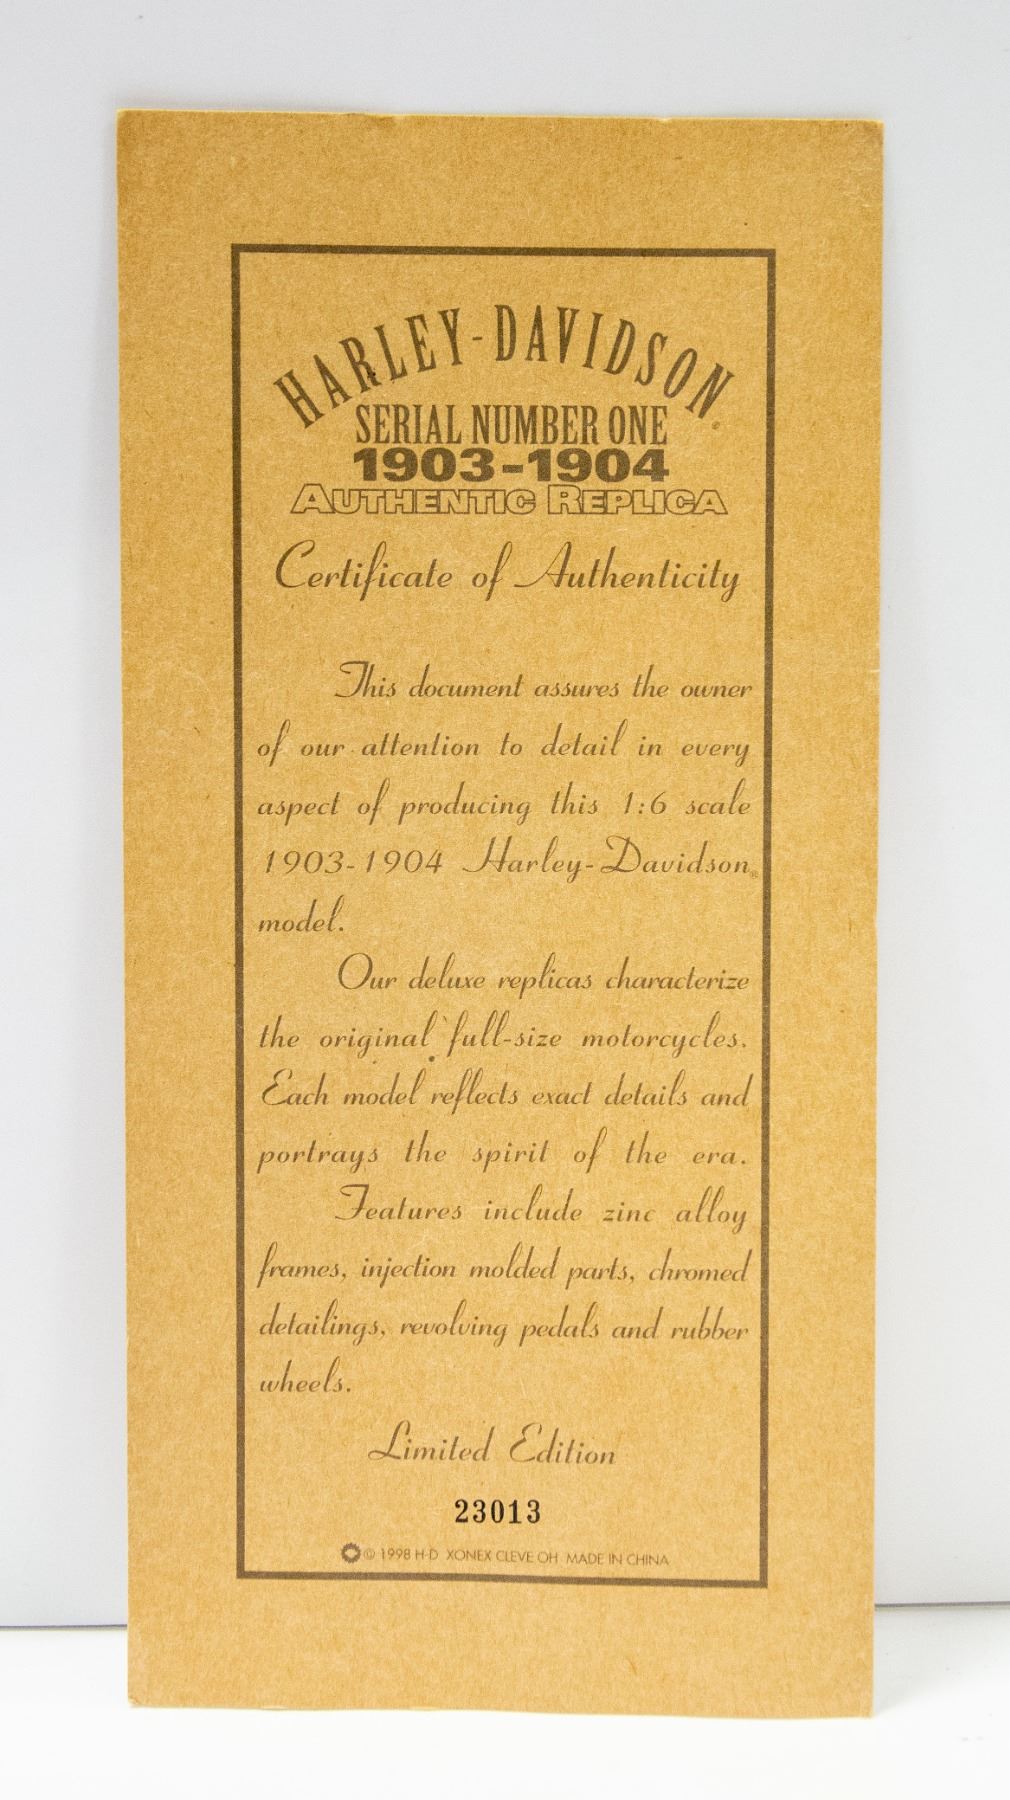 HARLEY-DAVIDSON®
SERIAL NUMBER ONE
1903-1904
AUTHENTIC REPLICA
Certificate of Authenticity
This document assures the owner
of our attention to detail in every
aspect of producing this 1:6 scale
1903-1904 Harley-Davidson®
model.
Our deluxe replicas characterize
the original full-size motorcycles.
Each model reflects exact details and
portrays the spirit of the era.
Features include zinc alloy
frames, injection molded parts, chromed
detailings, revolving pedals and rubber
wheels.
Limited Edition
23013
© 1998 H-D XONEX CLEVE OH MADE IN CHINA